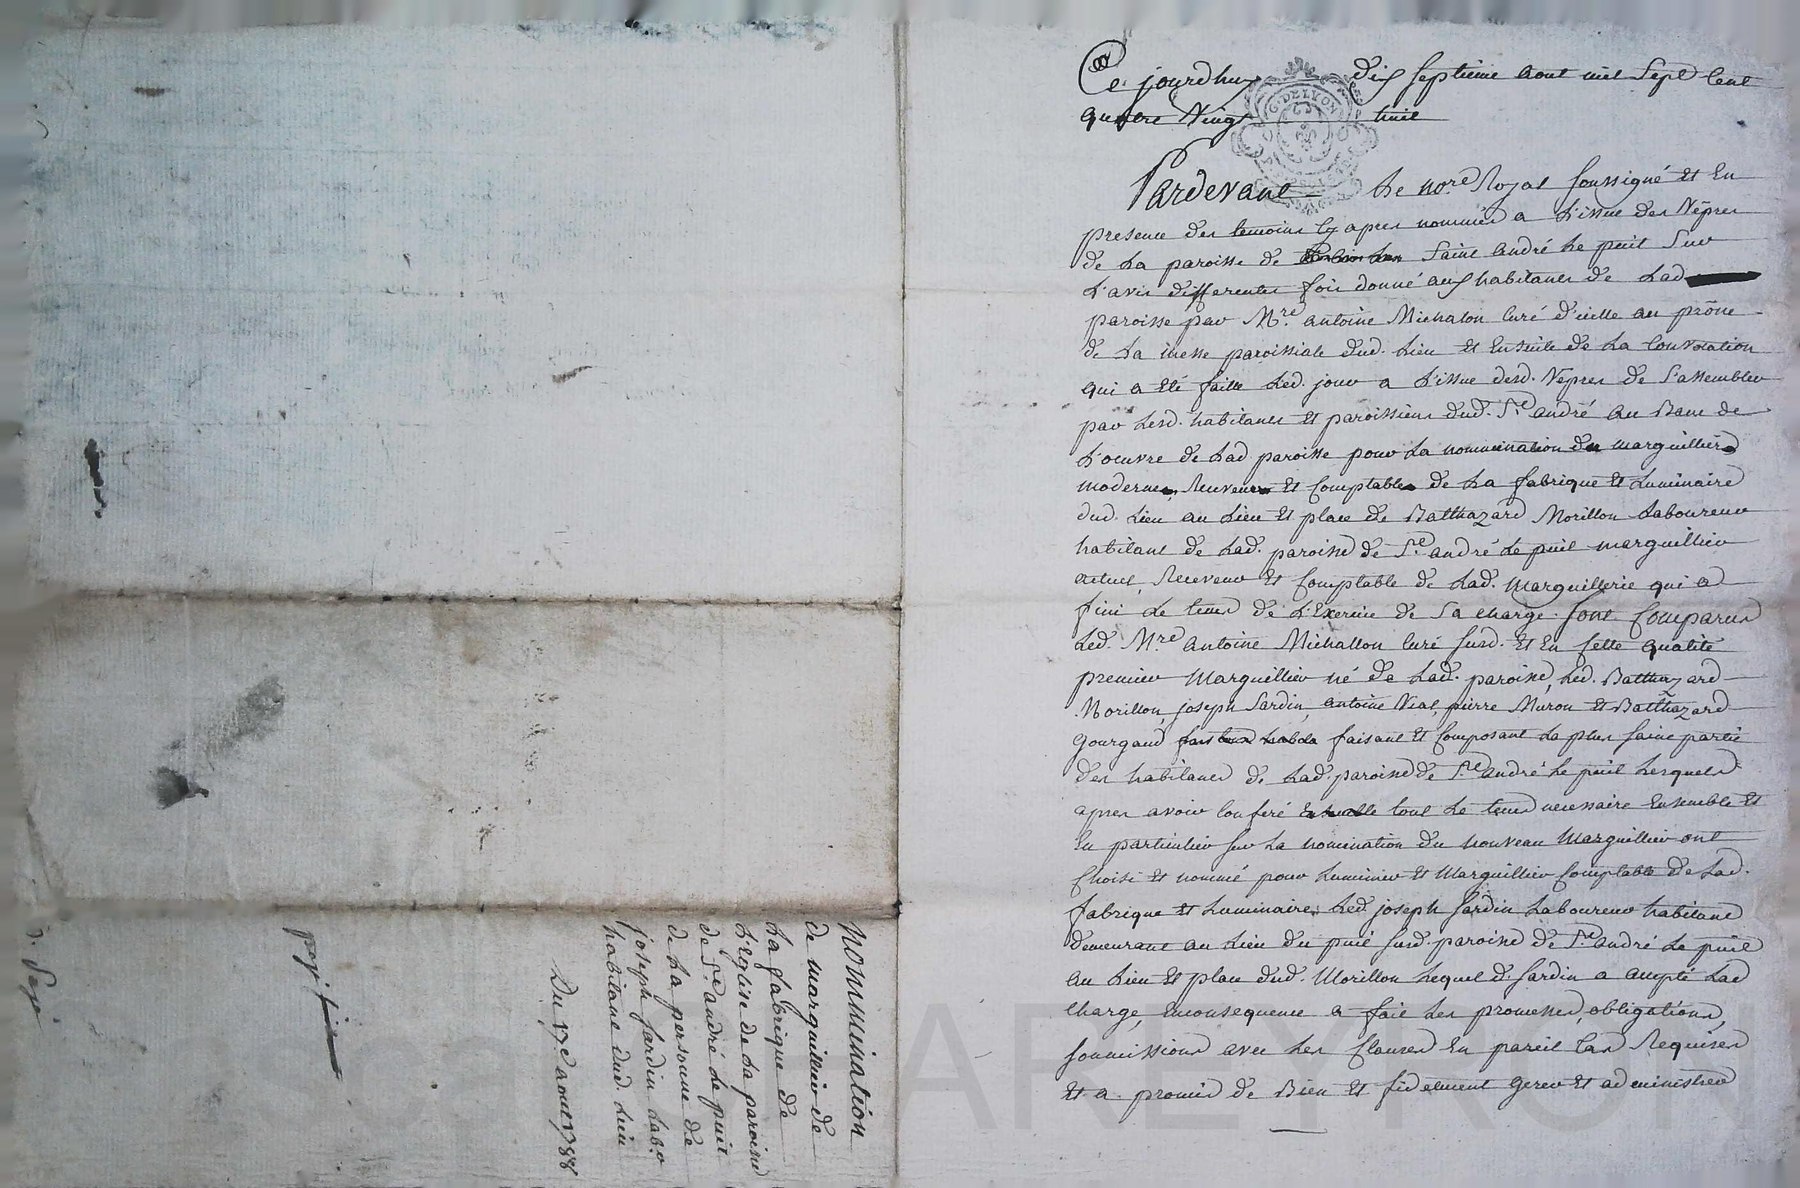 Ce jourdhuy dix septieme aout mil sept cent
quatre vingt huit
Pardevant Le no.re Royal soussigné et En
presence des temoins cy apres nommés a L'issue des Vêpres
de La paroisse de Saint andré Le puit Sur
L'avis differentes fois donné aux habitants de Lad.
paroisse par M.re antoine Michalon Curé d'icelle au prône
de La messe paroissiale dud. Lieu et Ensuite de La Convocation
qui a eté faitte Led. jour a L'issue desd. Vepres de S'assembler
par Lesd. habitants et paroissiens dud. S.t andré au Banc de
L'oeuvre de Lad paroisse pour La nommination du marguillier
moderne, Receveur et Comptable de La fabrique et Luminaire
dud. Lieu au Lieu et place de Balthazard Morillon Laboureur
habitant de Lad. paroisse de S.t andré Le puit marguillier
actuel, Receveur et Comptable de Lad. Marguillerie qui a
fini Le tems de L'Exercice de Sa charge. Sont Comparus
Led. M.re antoine Michallon Curé susd. et En Cette qualité
premier Marguillier né de Lad. paroisse, Led. Balthazard
Morillon, joseph Jardin, antoine Vial, pierre Muron et Balthazard
Gourgaud faisant et Composant La plus saine partie
des habitants de Lad. paroisse de S.t andré Le puit Lesquels
apres avoir Conferé tout Le tems necessaire Ensemble et
En particulier sur La nomination du nouveau Marguillier ont
Choisi et nommé pour Luminier et Marguillier Comptable de Lad.
fabrique et Luminaire, Led. joseph Jardin Laboureur habitant
demeurant au Lieu du puit susd. paroisse de S.t andré Le puit
au Lieu et place dud. Morillon Lequel d. Jardin a accepté Lad
Charge, Enconsequence a fait Les promesses, obligations,
soumissions avec Les Clauses En pareil Cas Requises
et a promis de Bien et fidelement gerer et administrer
Nommination
de marguillier de
La fabrique de
L'Eglise de La paroisse
de S.t andré Le puit
de La personne de
joseph Jardin Labo.r
habitant dud. Lieu
Du 17.e aout 1788
CHAREYRON